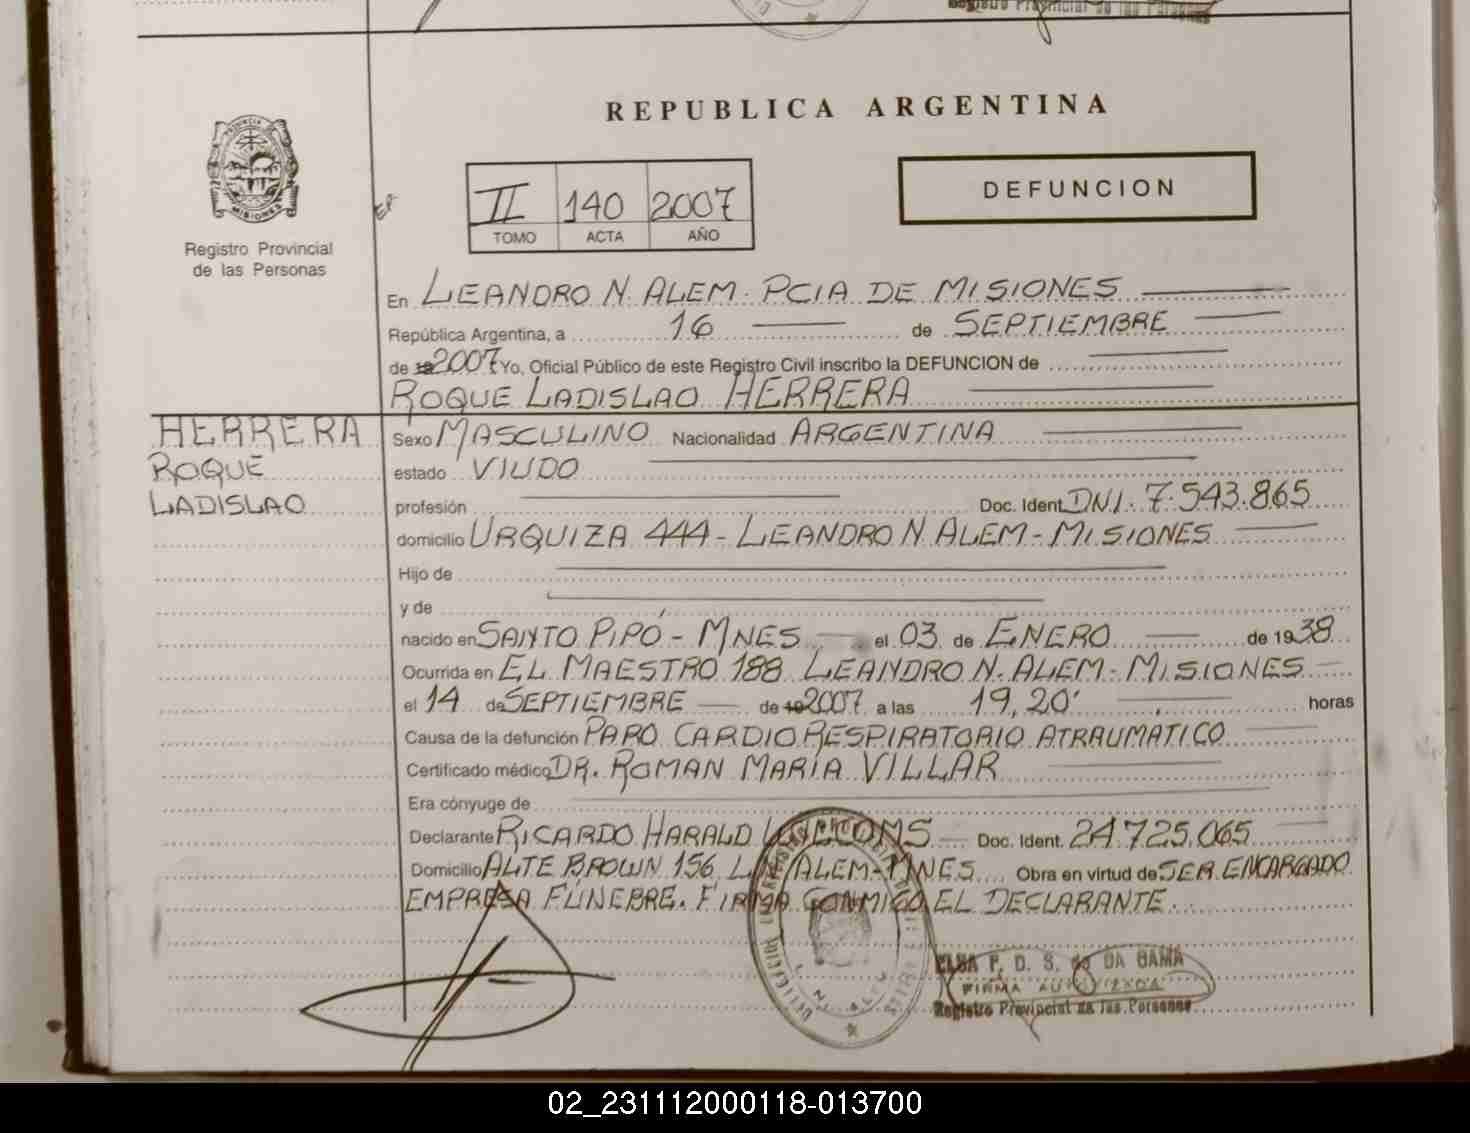 Registro Provincial de las Personas
REPUBLICA ARGENTINA
PROVINCIA DE
MISIONES
Registro Provincial
de las Personas
II 140 2007
TOMO ACTA AÑO
DEFUNCION
En LEANDRO N. ALEM. PCIA DE MISIONES
República Argentina, a 16 de SEPTIEMBRE
de 19 2007 Yo, Oficial Público de este Registro Civil inscribo la DEFUNCION de
ROQUE LADISLAO HERRERA
HERRERA
ROQUE
LADISLAO
Sexo MASCULINO Nacionalidad ARGENTINA
estado VIUDO
profesión Doc. Ident. DNI. 7.543.865
domicilio URQUIZA 444 - LEANDRO N. ALEM - MISIONES
Hijo de
y de
nacido en SANTO PIPÓ - MNES el 03 de ENERO de 1938
Ocurrida en EL MAESTRO 188 LEANDRO N. ALEM - MISIONES
el 14 de SEPTIEMBRE de 19 2007 a las 19,20' horas
Causa de la defunción PARO CARDIO RESPIRATORIO ATRAUMATICO
Certificado médico DR. ROMAN MARIA VILLAR
Era cónyuge de
Declarante RICARDO HARALD Doc. Ident. 24.725.065
Domicilio ALTE BROWN 156 L.N. ALEM - MNES Obra en virtud de SER ENCARGADO
EMPRESA FÚNEBRE. FIRMA CONMIGO EL DECLARANTE.
ELSA F. D. S. de DA GAMA
FIRMA AUTORIZADA
Registro Provincial de las Personas
02_231112000118-013700